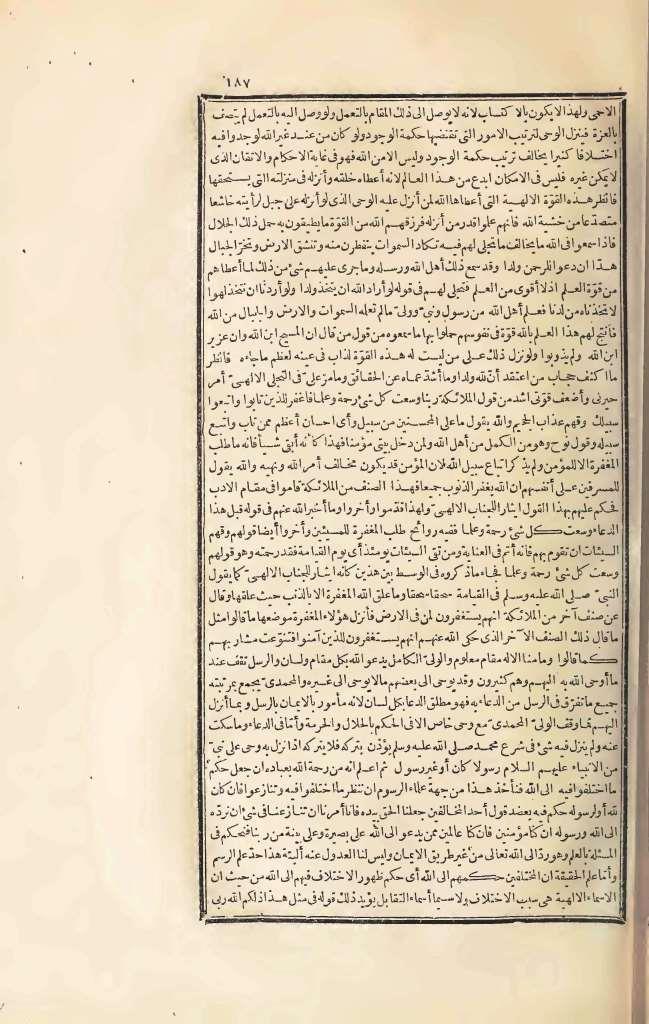 ١٨٧
الاحمى ولهذا لا يكون بالاكتساب لانه لا يوصل الى ذلك المقام بالتعمل ولو وصل اليه بالتعمل لم يتصف
بالعزة فينزل الوحى لترتيب الامور التى تقتضيها حكمة الوجود ولو كان من عند غير الله لوجدوا فيه
اختلافا كثيرا يخالف ترتيب حكمة الوجود وليس الامن الله فهو فى غاية الاحكام والاتقان الذى
لا يمكن غيره فليس فى الامكان ابدع من هذا العالم لانه أعطاه خلقته وأنزله فى منزلته التى يستحقها
فانظر هذه القوّة الالهية التى أعطاها الله لمن أنزل عليه الوحى الذى لو أنزله على جبل لرأيته خاشعا
متصدعا من خشية الله فانهم علموا قدر من أنزله فرزقهم الله من القوّة ما يطيقون به حمل ذلك الجلال
فاذا سمعوا فى الله ما يخالف ما تجلى لهم فيه تكاد السموات يتفطرن منه وتنشق الارض وتخرّ الجبال
هدا ان دعوا للرحمن ولدا وقد سمع ذلك أهل الله ورسله وما جرى عليهم شئ من ذلك لما أعطاهم
من قوّة العلم اذ لا أقوى من العلم فتجلى لهم فى قوله لو أراد الله ان يتخذ ولدا ولو أردنا ان نتخذ لهوا
لاتخذناه من لدنا فعلم أهل الله من رسول ونبىّ وولىّ ما لم تعلمه السموات والارض والجبال من الله
فانتج لهم هذا العلم بالله قوّة فى نفوسهم حملوا بها ما سمعوه من قول من قال ان المسيح ابن الله وان عزير
ابن الله ولم يذوبوا ولو نزل ذلك على من ليست له هذه القوّة لذاب فى عينه لعظم ما جاءه فانظر
ما أكثف حجاب من اعتقد أنّ لله ولدا وما أشدّ عماه عن الحقائق وما مرّ علىّ فى التجلى الالهىّ أمر
حيرنى وأضعف قوّتى اشد من قول الملائكة ربنا وسعت كل شئ رحمة وعلما فاغفر للذين تابوا واتبعوا
سبيلك وقهم عذاب الجحيم والله يقول ما على المحسنين من سبيل وأى احسان أعظم ممن تاب واتبع
سبيله وقول نوح وهو من الكمل من أهل الله ولمن دخل بيتى مؤمنا فهذا كأنه أبقى شيأ فانه ما طلب
المغفرة الا للمؤمن ولم يذكر اتباع سبيل الله لان المؤمن قد يكون مخالف أمر الله ونهيه والله يقول
للمسرفين على أنفسهم ان الله يغفر الذنوب جميعا فهذا الصنف من الملائكة قاموا فى مقام الادب
فحكم عليهم بهذا القول ايثارا للجناب الالهىّ ولهذا قدّموا وأخروا وما أخبر الله عنهم فى قوله قبل هذا
الدعاء وسعت كل شئ رحمة وعلما ففيه روائح طلب المغفرة للمسيئين وأخروا أيضا قولهم وقهم
السيئات ان تقوم بهم فانه أتم فى العناية ومن تق السيئات يومئذ أى يوم القيامة فقد رحمته وهو قولهم
وسعت كل شئ رحمة وعلما فجاء ما ذكروه فى الوسط بين هذين كأنه ايثار للجناب الالهىّ كما يقول
النبىّ صلى الله عليه وسلم فى القيامة سحقا سحقا وما علق الله المغفرة الا بالذنب حيث علقها وقال
عن صنف آخر من الملائكة انهم يستغفرون لمن فى الارض فأنزل هؤلاء المغفرة موضعها ما قالوا مثل
ما قال ذلك الصنف الآخر الذى حكى الله عنهم انهم يستغفرون للذين آمنوا فتنوّعت مشاربهم
كما قالوا وما منا الا له مقام معلوم والولىّ الكامل يدعو الله بكل مقام ولسان والرسل تقف عند
ما أوحى الله به اليهم وهم كثيرون وقد يوحى الى بعضهم ما لا يوحى الى غيره والمحمدىّ يجمع بمرتبته
جميع ما تفرّق فى الرسل من الدعاء به فهو مطلق الدعاء بكل لسان لانه مأمور بالايمان بالرسل وبما أنزل
اليهم فما وقف الولىّ المحمدىّ مع وحى خاص الا فى الحكم بالحلال والحرمة وأما فى الدعاء وما سكت
عنه ولم ينزل فيه شئ فى شرع محمد صلى الله عليه وسلم يؤذن بتركه فلا يتركه اذا نزل به وحى على نبىّ
من الانبياء عليهم السلام رسولا كان أو غير رسول ثم اعلم انه من رحمة الله بعباده ان جعل حكم
ما اختلفوا فيه الى الله فنأخذ هذا من جهة علماء الرسوم ان ننظر ما اختلفوا فيه وتنازعوا فان كان
لله أو لرسوله حكم فيه يعضد قول أحد المخالفين جعلنا الحق بيده فانا أمرنا ان تنازعنا فى شئ ان نردّه
الى الله ورسوله ان كنا مؤمنين فان كنا عالمين ممن يدعو الى الله على بصيرة وعلى بينة من ربنا فنحكم فى
المسئلة بالعلم وهو ردّ الى الله تعالى من غير طريق الايمان وليس لنا العدول عنه ألبتة هذا حدّ علم الرسم
وأما علم الحقيقة ان المختلفين حكمهم الى الله أى حكم ظهور الاختلاف فيهم الى الله من حيث ان
الاسماء الالهية هى سبب الاختلاف ولا سيما أسماء التقابل يؤيد ذلك قوله فى مثل هذا ذلكم الله ربى